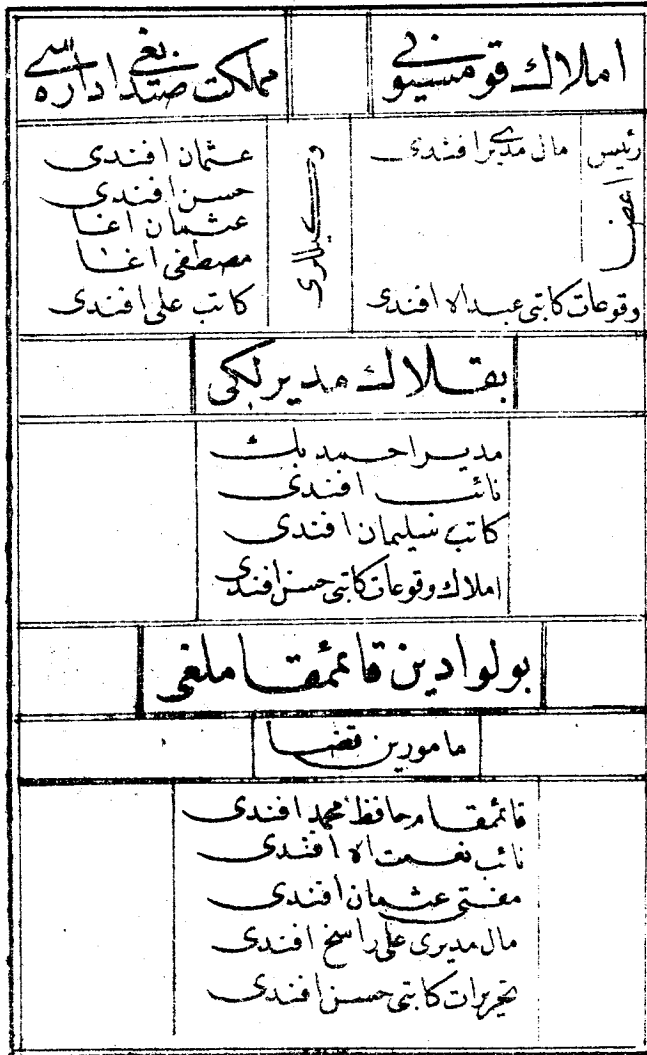 املاك قومسيونى
رئيس مال مديرى افندى
اعضا
وقوعات كاتبى عبد الله افندى
مملكت صندیغی اداره سى
وكيللرى
عثمان افندى
حسن افندى
عثمان اغا
مصطفى اغا
كاتب على افندى
بقلاك مديرلكى
مدير احمد بك
نائب افندى
كاتب سليمان افندى
املاك وقوعات كاتبى حسن افندى
بولوادين قائممقاملغى
مامورين قضا
قائممقام حافظ محمد افندى
نائب نعمت الله افندى
مفتى عثمان افندى
مال مديرى على راسخ افندى
تحريرات كاتبى حسن افندى